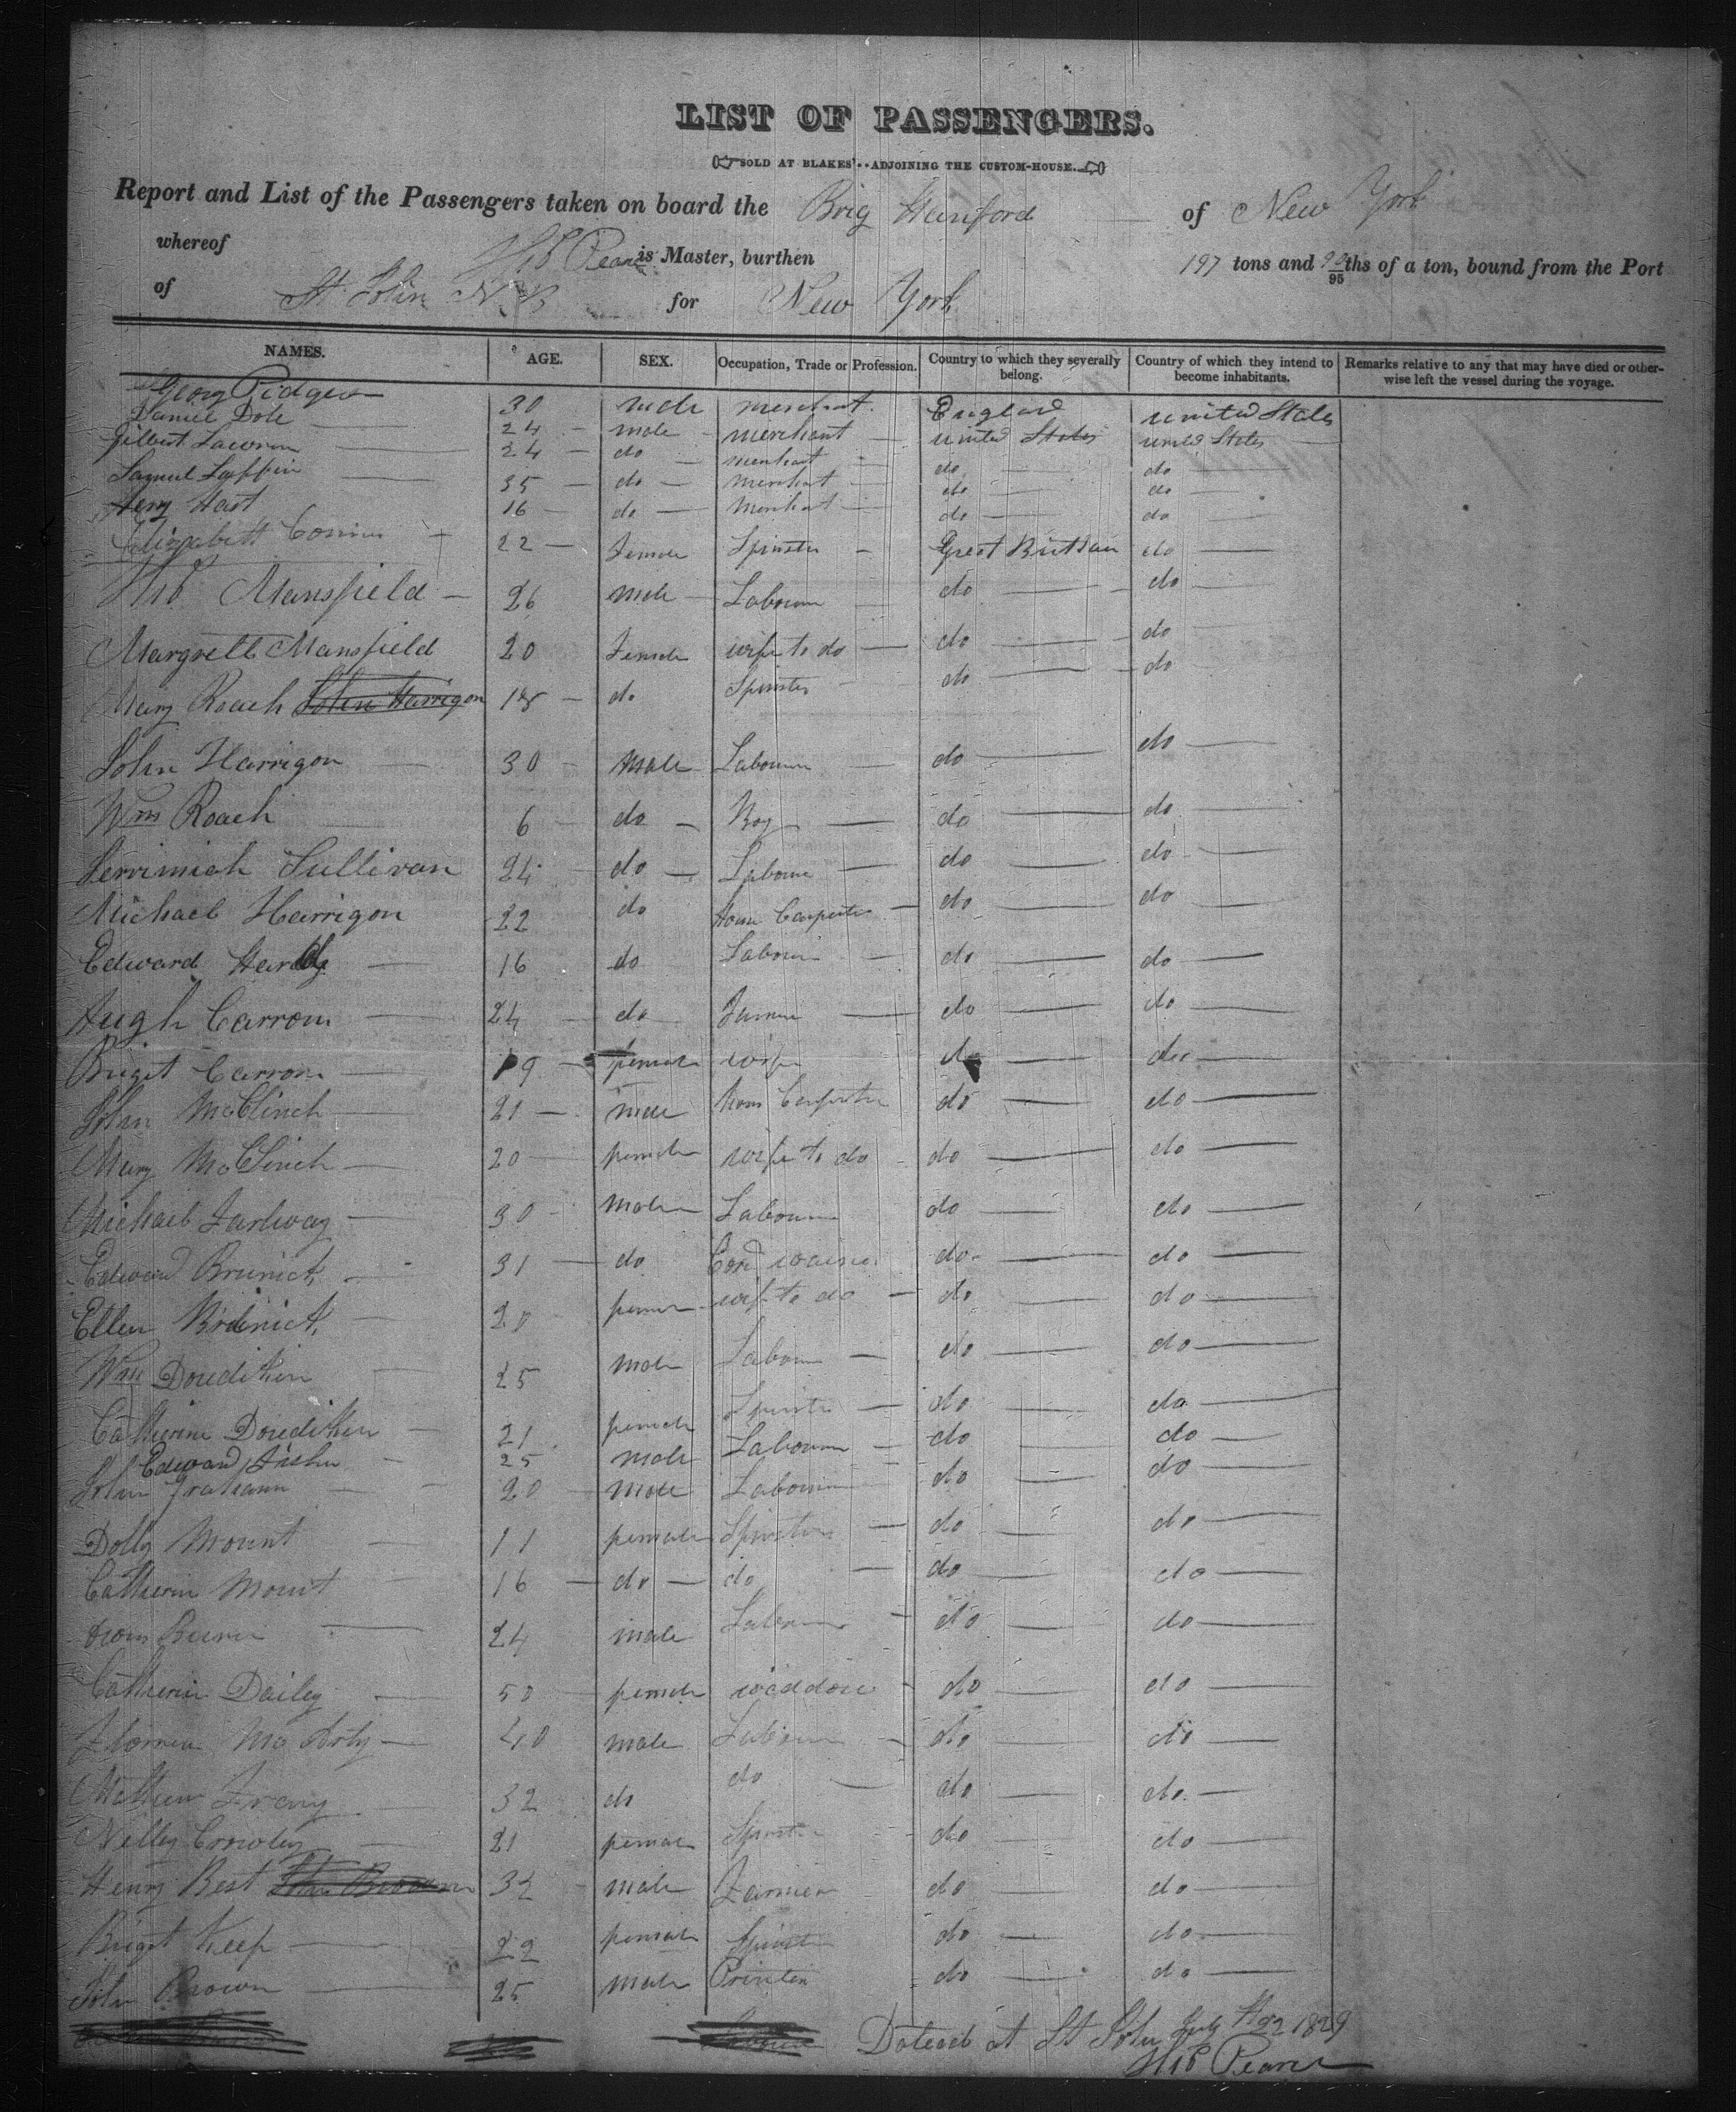 LIST OF PASSENGERS.
SOLD AT BLAKES'..ADJOINING THE CUSTOM-HOUSE.
Report and List of the Passengers taken on board the Brig Hanford of New York
whereof Pearce is Master, burthen 197 tons and 90/95ths of a ton, bound from the Port
of St John N B for New York
NAMES. AGE. SEX. Occupation, Trade or Profession. Country to which they severally belong. Country of which they intend to become inhabitants. Remarks relative to any that may have died or otherwise left the vessel during the voyage.
Georg Pidgeon 30 male merchant. England United States
Daniel Dole 24 male merchant United States United States
Gilbert 24 do merchant do do
Samuel 35 do merchant do do
Henry Hart 16 do merchant do do
Elizabeth 22 Female Spinster Great Brittan do
Mansfield 26 male Labourer do do
Margrett Mansfield 20 Female wife to do do do
Mary Roach John Harrigon 18 do Spinster do do
John Harrigon 30 Male Labourer do do
Wm Roach 6 do Boy do do
Jerrimiah Sullivan 24 do Labourer do do
Michael Harrigon 22 do House Carpenter do do
Edward 16 do Labourer do do
Hugh Carroun 24 do Farmer do do
Briget Carroun 19 female wife do do
John McClinch 21 male hous Carpenter do do
Mary McClinch 20 female wife to do do do
Michael Farlway 30 Male Labourer do do
Edward Brunict 31 do Cord wainer do do
Ellen Brunict 20 female wife to do do do
Wm Doudikin 25 male Labourer do do
Catherine Doudiken 21 female Spinster do do
Edward Fisher 25 male Labourer do do
John Grahann 20 male Labourer do do
Dolly Mount 11 female Spinster do do
Catherin Mount 16 do do do do
24 male Labourer do do
Catherin Dailey 50 female widdow do do
40 male Labourer do do
Mathew 32 do do do do
Nelley Crowley 21 female Spinster do do
Henry Best John Brown 32 male Farmer do do
Briget Keef 22 female Spinster do do
John Brown 25 male Printer do do
Dated at St John July 22 1829
Pearce